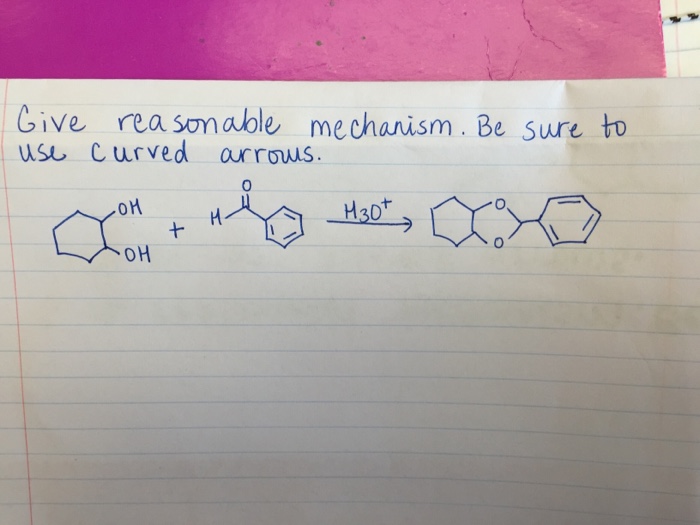 Give reasonable mechanism. Be sure to
use curved arrows.
OH
OH
+
O
H
H3O+
O
O